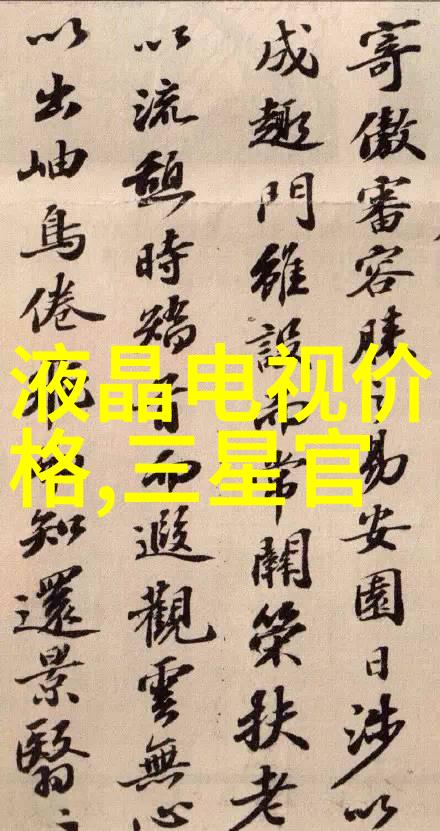 液晶电视价
格,三星官
寄傲審容膝易安園日涉以
成趣門雖設而常關策扶老
以流憩時矯首而遐觀雲無心
以出岫鳥倦知還景翳